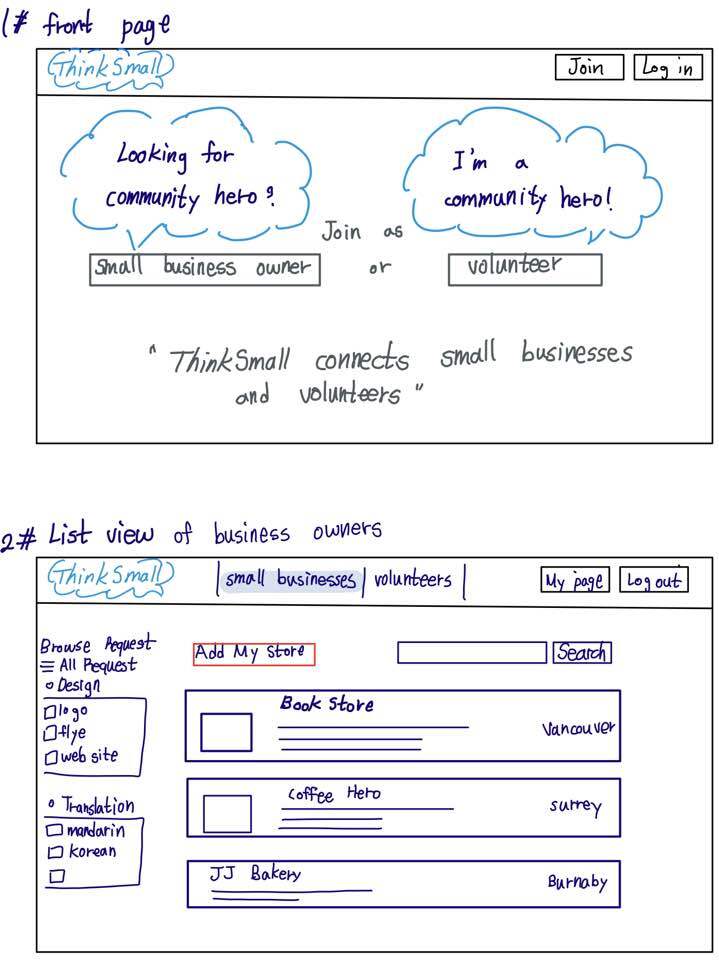 1# front page
ThinkSmall
Join
Log in
Looking for
community hero?
I'm a
community hero!
Join as
small business owner
or
volunteer
" ThinkSmall connects small businesses
and volunteers "
2# List view of business owners
ThinkSmall
small businesses
volunteers
My page
Log out
Browse Request
All Request
Design
logo
flye
web site
Translation
mandarin
korean
Add My Store
Search
Book Store
Vancouver
Coffee Hero
surrey
JJ Bakery
Burnaby